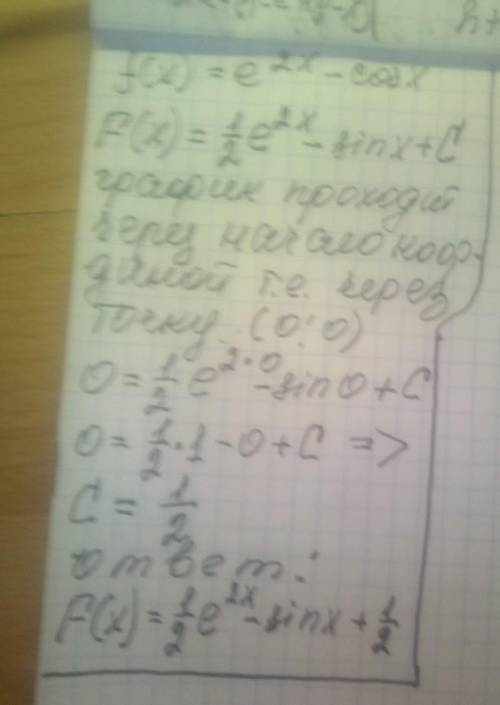 f(x) = e^{2x} - cosx
F(x) = \frac{1}{2}e^{2x} - sinx + C
график проходит
через начало коор-
динат т.е. через
точку (0;0)
0 = \frac{1}{2}e^{2·0} - sin0 + C
0 = \frac{1}{2}·1 - 0 + C =>
C = \frac{1}{2}
ответ:
F(x) = \frac{1}{2}e^{2x} - sinx + \frac{1}{2}